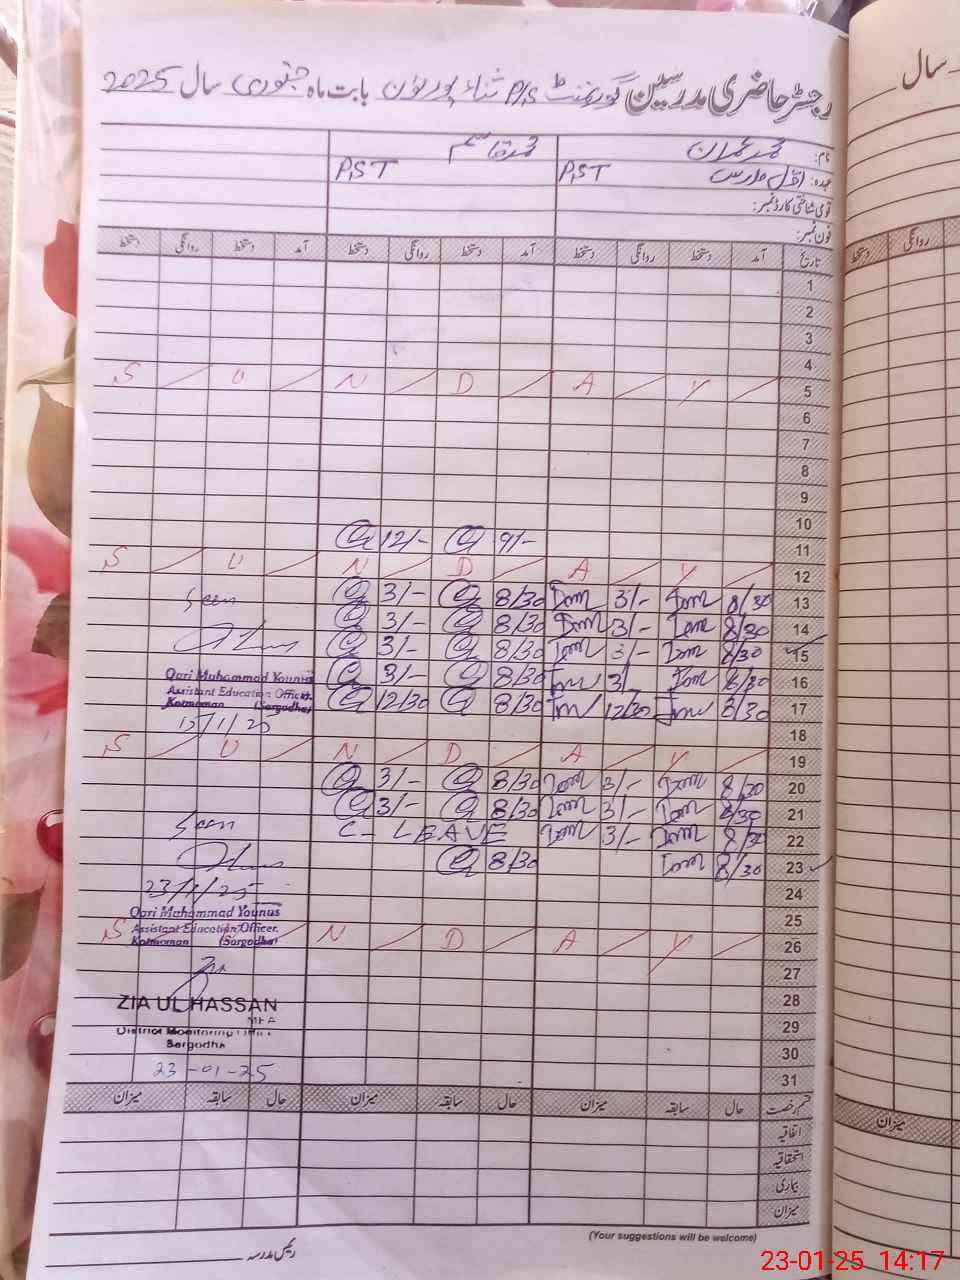 رجسٹر حاضری مدرسین گورنمنٹ P/S ثناء پور نون بابت ماہ جنوری سال 2025
نام: محمد عمران محمد قاسم
عہدہ: اوّل مدرس P,ST P,ST
قومی شناختی کارڈ نمبر:
فون نمبر:
تاریخ آمد دستخط روانگی دستخط آمد دستخط روانگی دستخط آمد دستخط روانگی دستخط
1
2
3
4
S U N D A Y 5
6
7
8
9
10
12/- 9/- 11
S U N D A Y 12
Seen 3/- 8/30 Imr 3/- Imr 8/30 13
3/- 8/30 Imr 3/- Imr 8/30 14
3/- 8/30 Imr 3/- Imr 8/30 15
Qari Muhammad Younus 3/- 8/30 Imr 3/ Imr 8/30 16
Assistant Education Officer.
Kotmoman (Sargodha) 12/30 8/30 Im 12/30 Imr 8/30 17
15/1/25 18
S U N D A Y 19
3/- 8/30 Imr 3/- Imr 8/30 20
3/- 8/30 Imr 3/- Imr 8/30 21
Seen C- LEAVE Imr 3/- Imr 8/30 22
8/30 Imr 8/30 23
23/1/25 24
Qari Muhammad Younus 25
Assistant Education Officer.
Kotmoman (Sargodha)
S U N D A Y 26
27
ZIA UL HASSAN 28
MEA
District Monitoring Office 29
Sargodha 30
23-01-25 31
قسم رخصت حال سابقہ میزان حال سابقہ میزان حال سابقہ میزان
اتفاقیہ
استحقاقیہ
بیماری
میزان
(Your suggestions will be welcome)
رئیس مدرسہ
سال
روانگی دستخط
میزان
23-01-25 14:17